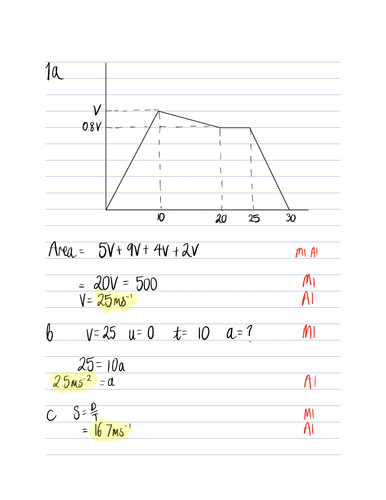 1a
V
0.8V
10 20 25 30
Area = 5V + 9V + 4V + 2V M1 A1
= 20V = 500 M1
V = 25ms⁻¹ A1
b V=25 u=0 t= 10 a=? M1
25 = 10a
2.5ms⁻² = a A1
c S = D/T M1
= 16.7ms⁻¹ A1